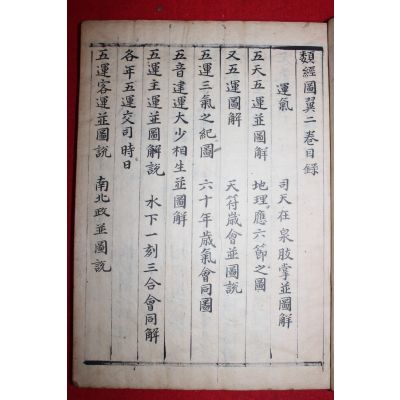 類經圖翼二卷目錄
運氣 司天在泉肢掌並圖解
五天五運並圖解 地理應六節之圖
又五運圖解 天符歲會並圖說
五運三氣之紀圖 六十年歲氣會同圖
五音建運太少相生並圖解
五運主運並圖解說 水下一刻三合會同解
各年五運交司時日
五運客運並圖說 南北政並圖說